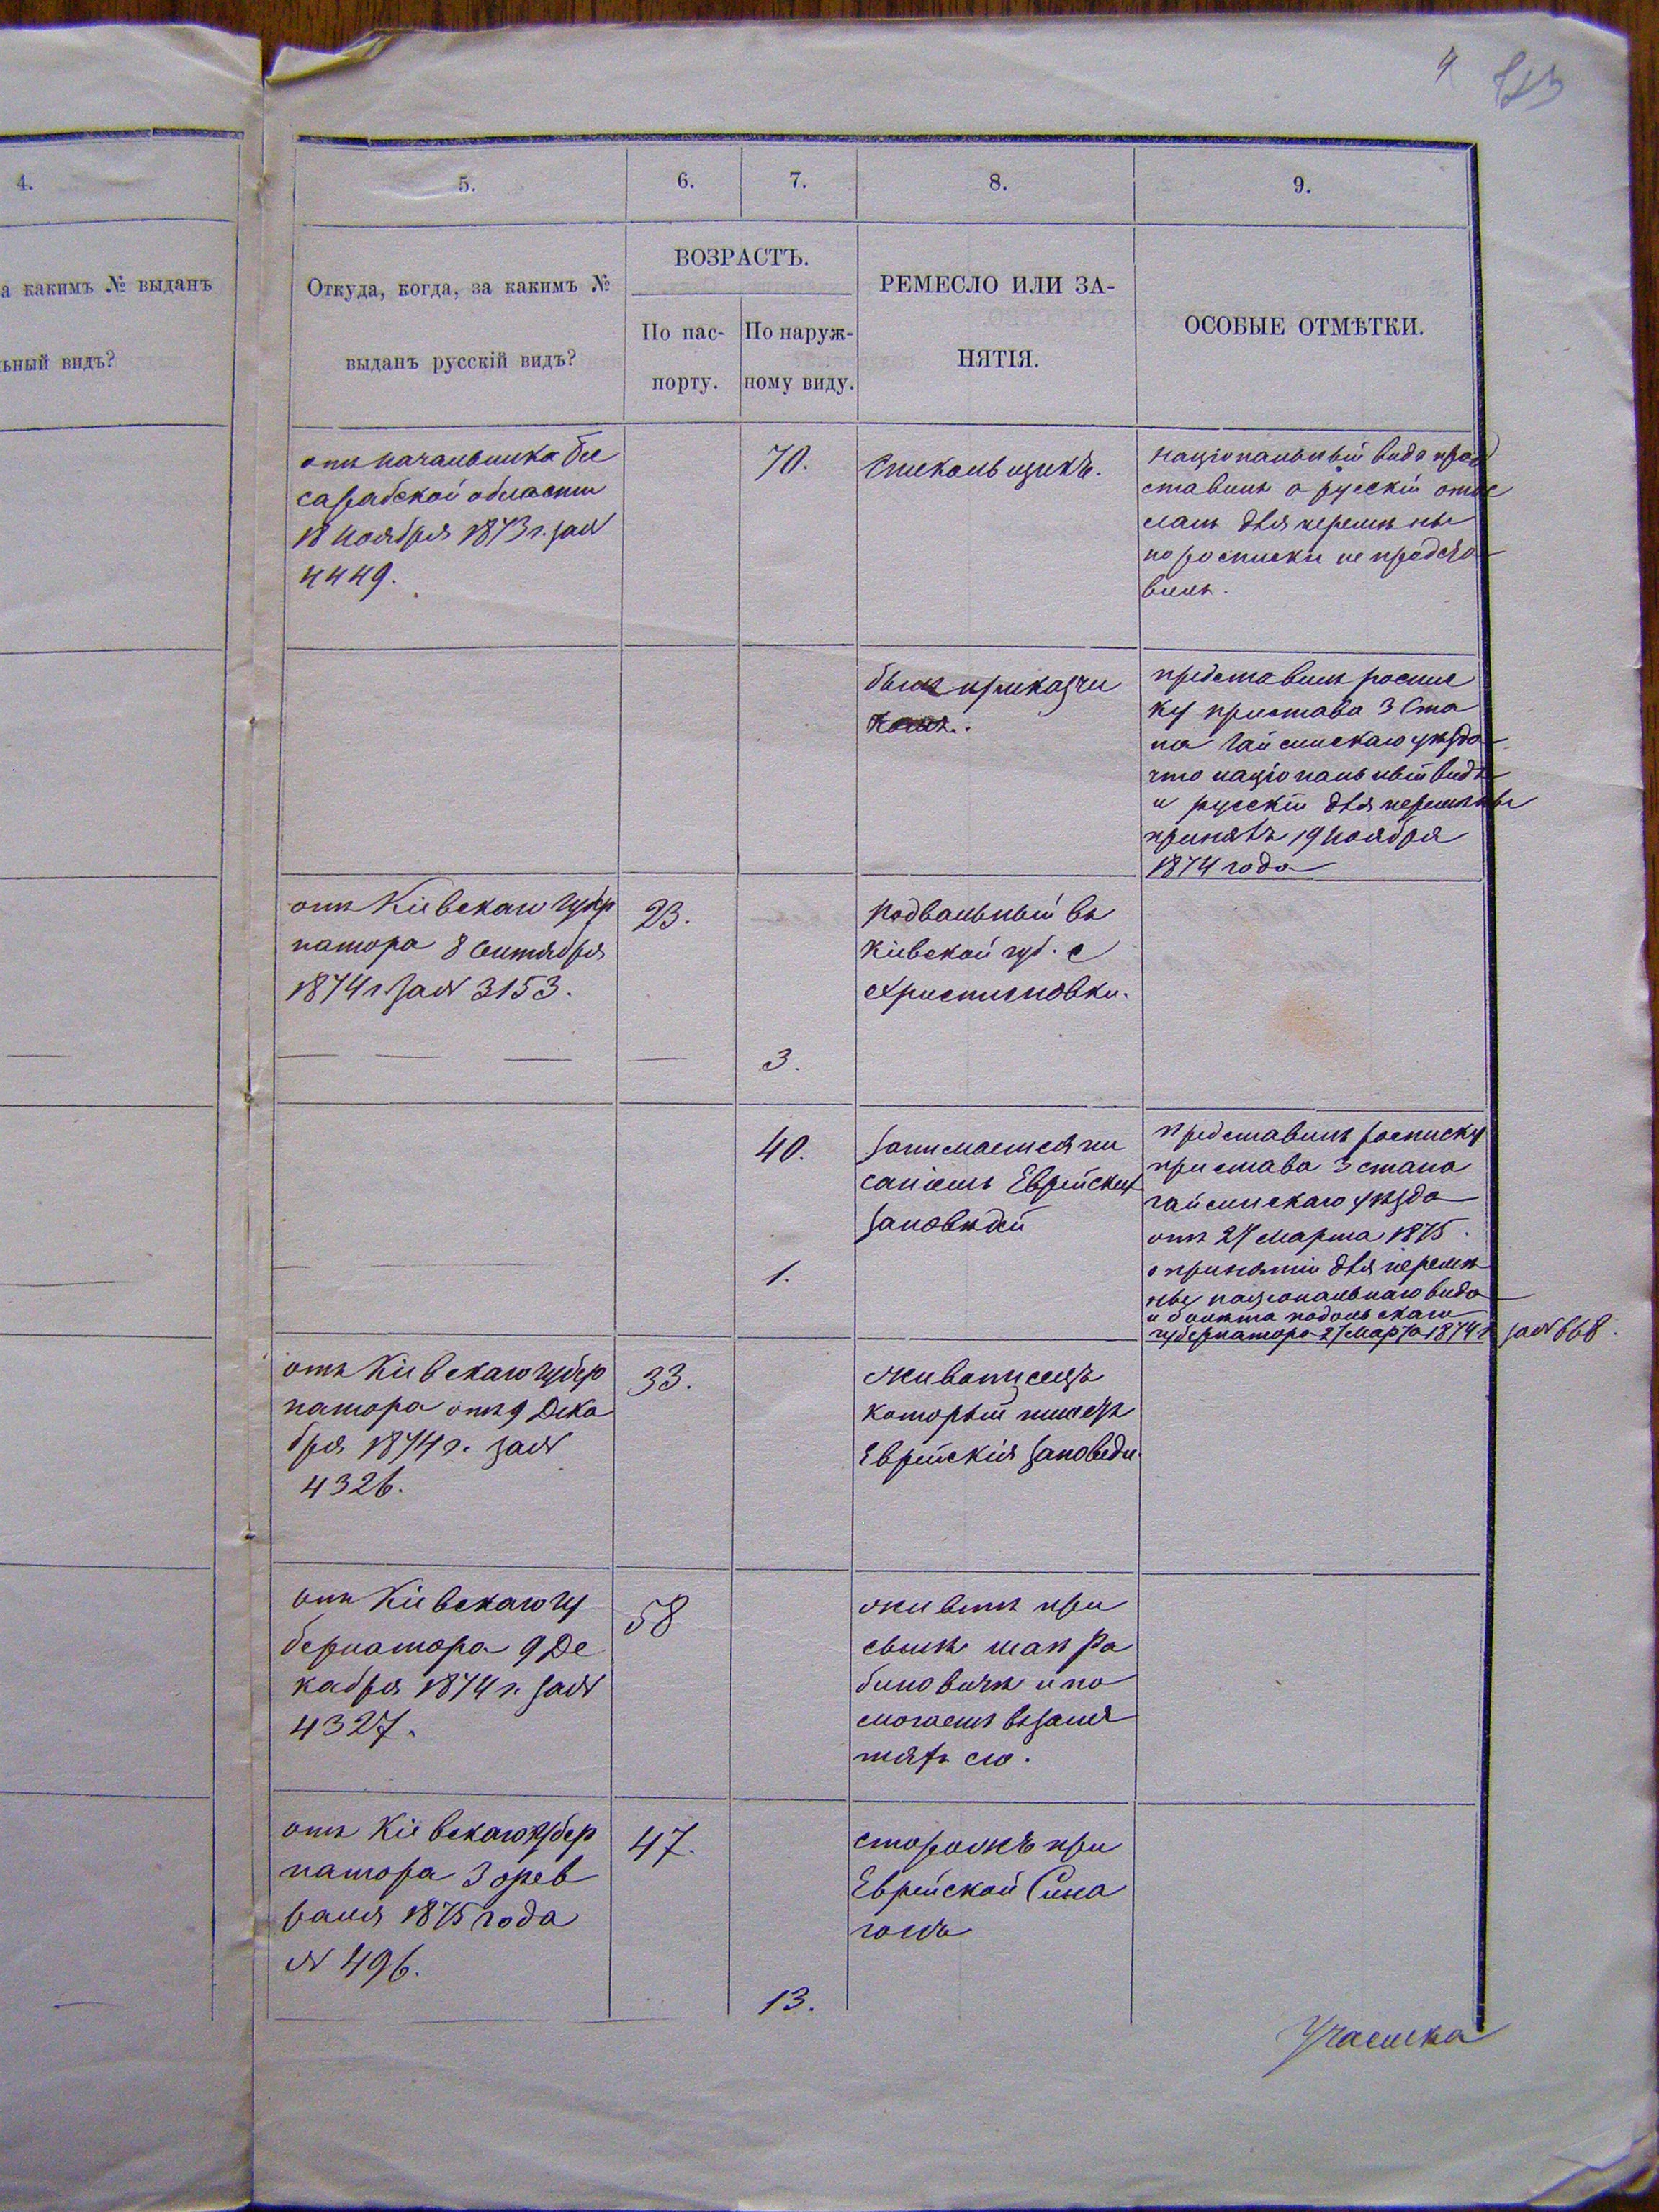 4
4.
5.
6.
7.
8.
9.
а какимъ № выданъ
ьный видъ?
Откуда, когда, за какимъ №
выданъ русскій видъ?
ВОЗРАСТЪ.
По пас-
порту.
По наруж-
ному виду.
РЕМЕСЛО ИЛИ ЗА-
НЯТІЯ.
ОСОБЫЕ ОТМѢТКИ.
отъ начальника Бес
сарабской области
18 ноября 1873 г. за №
4449.
70.
Стекольщикъ.
національный видъ пред
ставилъ а русскій отос
ланъ для перемѣны
но росписки не предста
вилъ.
былъ приказчи
комъ.
представилъ роспис
ку пристава 3 Ста
на Гайсинскаго уѣзда
что національный видъ
и русскій для перемѣны
принятъ 19 ноября
1874 года
отъ Кіевскаго Губер
натора 8 Сентября
1874 г. за № 3153.
23.
подвальный въ
Кіевской губ. с
Христиновки.
3.
40.
занимается пи
саніемъ Еврейскихъ
заповѣдей
представилъ росписку
пристава 3 стана
гайсинскаго уѣзда
отъ 27 марта 1875.
о принятіи для перемѣ
ны національнаго вида
и билета подольскаго
губернатора 27 марта 1874 г. за № 668.
1.
отъ Кіевскаго губер
натора отъ 9 Дека
бря 1874 г. за №
4326.
33.
живописецъ
который пишетъ
Еврейскія заповеди.
отъ Кіевскаго Гу
бернатора 9 Де
кабря 1874 г. за №
4327.
58
живетъ при
сынѣ
биновичъ и по
могаетъ въ заня
тіяхъ его.
отъ Кіевскаго Губер
натора 3 фев
раля 1875 года
№ 496.
47.
сторожъ при
Еврейской Сина
гогѣ
13.